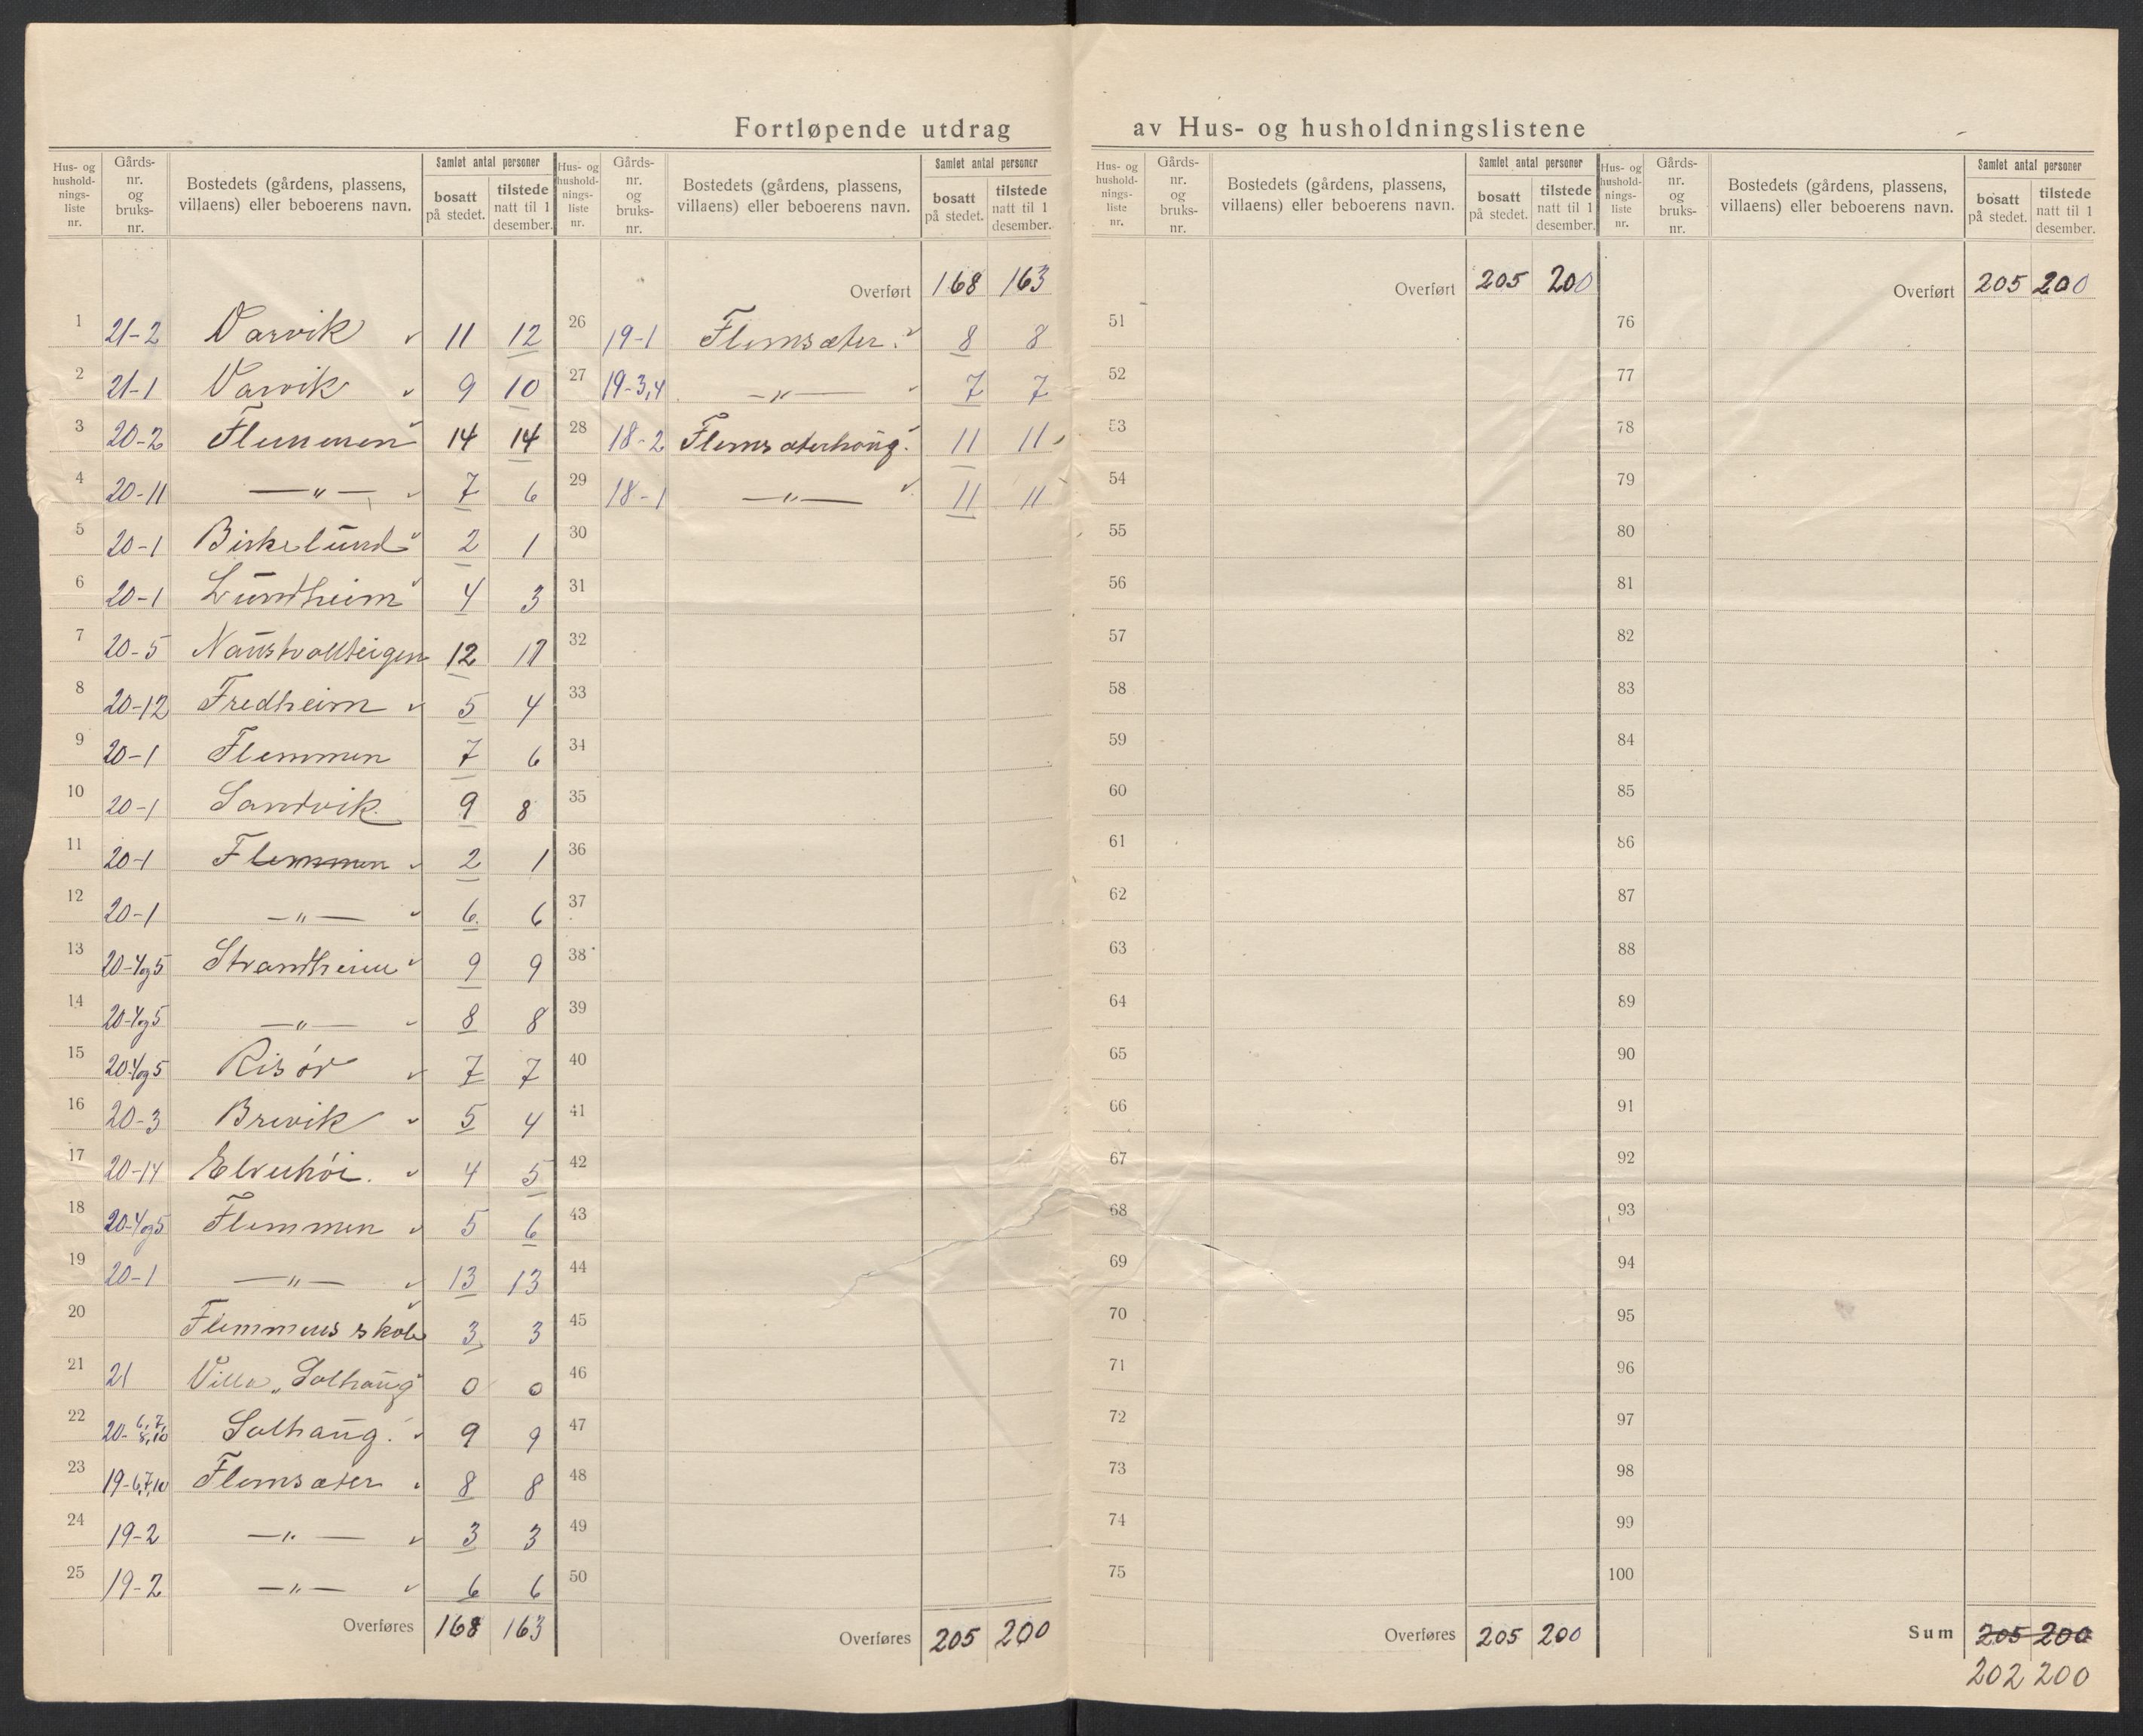 Fortløpende utdrag av Hus- og husholdningslistene
Hus- og hushold-nings-liste nr. Gårds-nr. og bruks-nr. Bostedets (gårdens, plassens, villaens) eller beboerens navn. Samlet antal personer bosatt på stedet. tilstede natt til 1 desember.
1 21-2 Varvik 11 12
2 21-1 Varvik 9 10
3 20-2 Flemmen 14 14
4 20-11 —„— 7 6
5 20-1 Birkelund 2 1
6 20-1 Lundheim 4 3
7 20-5 Naustvollteigen 12 11
8 20-12 Fredheim 5 4
9 20-1 Flemmen 7 6
10 20-1 Sandvik 9 8
11 20-1 Flemmen 2 1
12 20-1 —„— 6 6
13 20-4og5 Strandheim 9 9
14 20-4og5 —„— 8 8
15 20-4og5 Risør 7 7
16 20-3 Brevik 5 4
17 20-14 Elvehøi. 4 5
18 20-4og5 Flemmen 5 6
19 20-1 —„— 13 13
20 Flemmens skole 3 3
21 21 Villa „Solhaug" 0 0
22 20-6,7,8,10 Solhaug. 9 9
23 19-6,7,10 Flemsæter 8 8
24 19-2 —„— 3 3
25 19-2 —„— 6 6
Overføres 168 163
Hus- og hushold-nings-liste nr. Gårds-nr. og bruks-nr. Bostedets (gårdens, plassens, villaens) eller beboerens navn. Samlet antal personer bosatt på stedet. tilstede natt til 1 desember.
Overført 168 163
26 19-1 Flemsæter. 8 8
27 19-3,4 —„— 7 7
28 18-2 Flemsæterhaug. 11 11
29 18-1 —„— 11 11
30
31
32
33
34
35
36
37
38
39
40
41
42
43
44
45
46
47
48
49
50
Overføres 205 200
Hus- og hushold-nings-liste nr. Gårds-nr. og bruks-nr. Bostedets (gårdens, plassens, villaens) eller beboerens navn. Samlet antal personer bosatt på stedet. tilstede natt til 1 desember.
Overført 205 200
51
52
53
54
55
56
57
58
59
60
61
62
63
64
65
66
67
68
69
70
71
72
73
74
75
Overføres 205 200
Hus- og hushold-nings-liste nr. Gårds-nr. og bruks-nr. Bostedets (gårdens, plassens, villaens) eller beboerens navn. Samlet antal personer bosatt på stedet. tilstede natt til 1 desember.
Overført 205 200
76
77
78
79
80
81
82
83
84
85
86
87
88
89
90
91
92
93
94
95
96
97
98
99
100
Sum 205 200
202 200